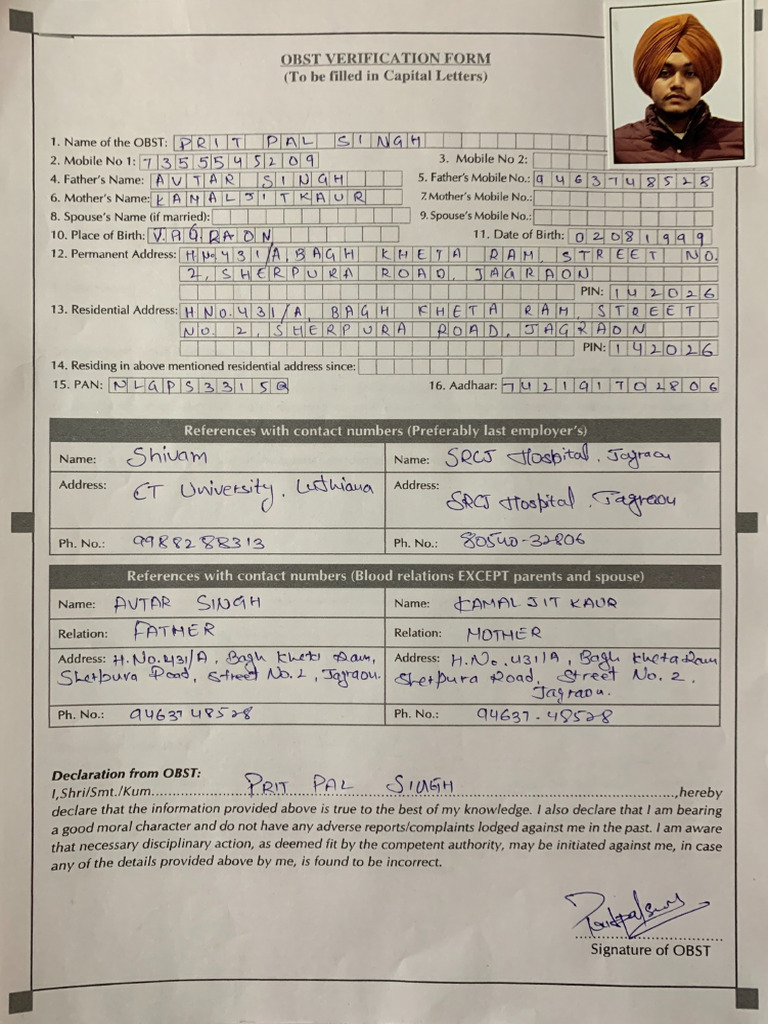 OBST VERIFICATION FORM
(To be filled in Capital Letters)
1. Name of the OBST: PRIT PAL SINGH
2. Mobile No 1: 7355545209 3. Mobile No 2:
4. Father's Name: AVTAR SINGH 5. Father's Mobile No.: 9463748528
6. Mother's Name: KAMALJIT KAUR 7. Mother's Mobile No.:
8. Spouse's Name (if married): 9. Spouse's Mobile No.:
10. Place of Birth: 11. Date of Birth: 02081999
12. Permanent Address: H No 431/A, BAGH KHETA RAM, STREET NO.
2, SHERPURA ROAD, JAGRAON
PIN: 142026
13. Residential Address: H NO. 431/A, BAGH KHETA RAM, STREET
NO. 2, SHERPURA ROAD, JAGRAON
PIN: 142026
14. Residing in above mentioned residential address since:
15. PAN: NLGPS3315Q 16. Aadhaar: 742191702806
References with contact numbers (Preferably last employer's)
Name: Shivam Name: SRCJ Hospital. Jagraon
Address: CT University, Ludhiana Address: SRCJ Hospital. Jagraon
Ph. No.: Ph. No.: 80540-32806
References with contact numbers (Blood relations EXCEPT parents and spouse)
Name: AVTAR SINGH Name: KAMALJIT KAUR
Relation: FATHER Relation: MOTHER
Address: H.No.431/A, Bagh Kheta Ram, Address: H.No. 431/A, Bagh Kheta Ram
Sherpura Road, Street No.2, Jagraon. Sherpura Road, Street No. 2,
Jagraon.
Ph. No.: 94637 48528 Ph. No.: 94637-48528
Declaration from OBST:
I,Shri/Smt./Kum. PRIT PAL SINGH ,hereby
declare that the information provided above is true to the best of my knowledge. I also declare that I am bearing
a good moral character and do not have any adverse reports/complaints lodged against me in the past. I am aware
that necessary disciplinary action, as deemed fit by the competent authority, may be initiated against me, in case
any of the details provided above by me, is found to be incorrect.
Signature of OBST